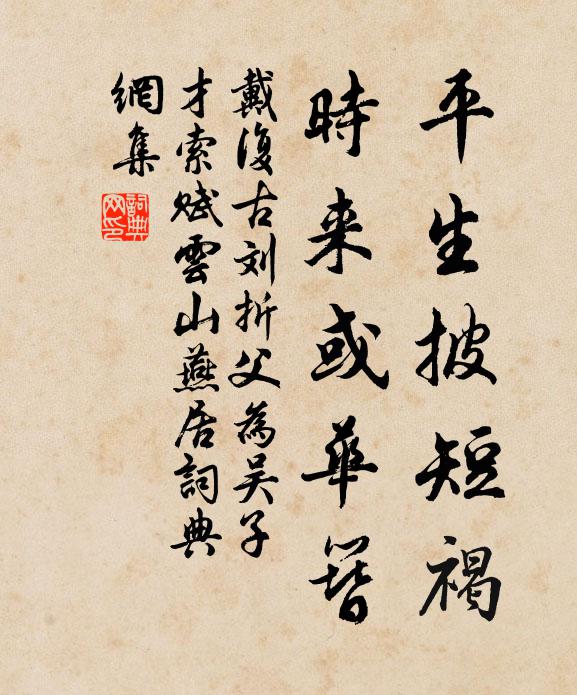 平生披短褐
時来或華簪
戴復古刘折父為吴子
才索賦雲山燕居詞典
網集
詞典
网印